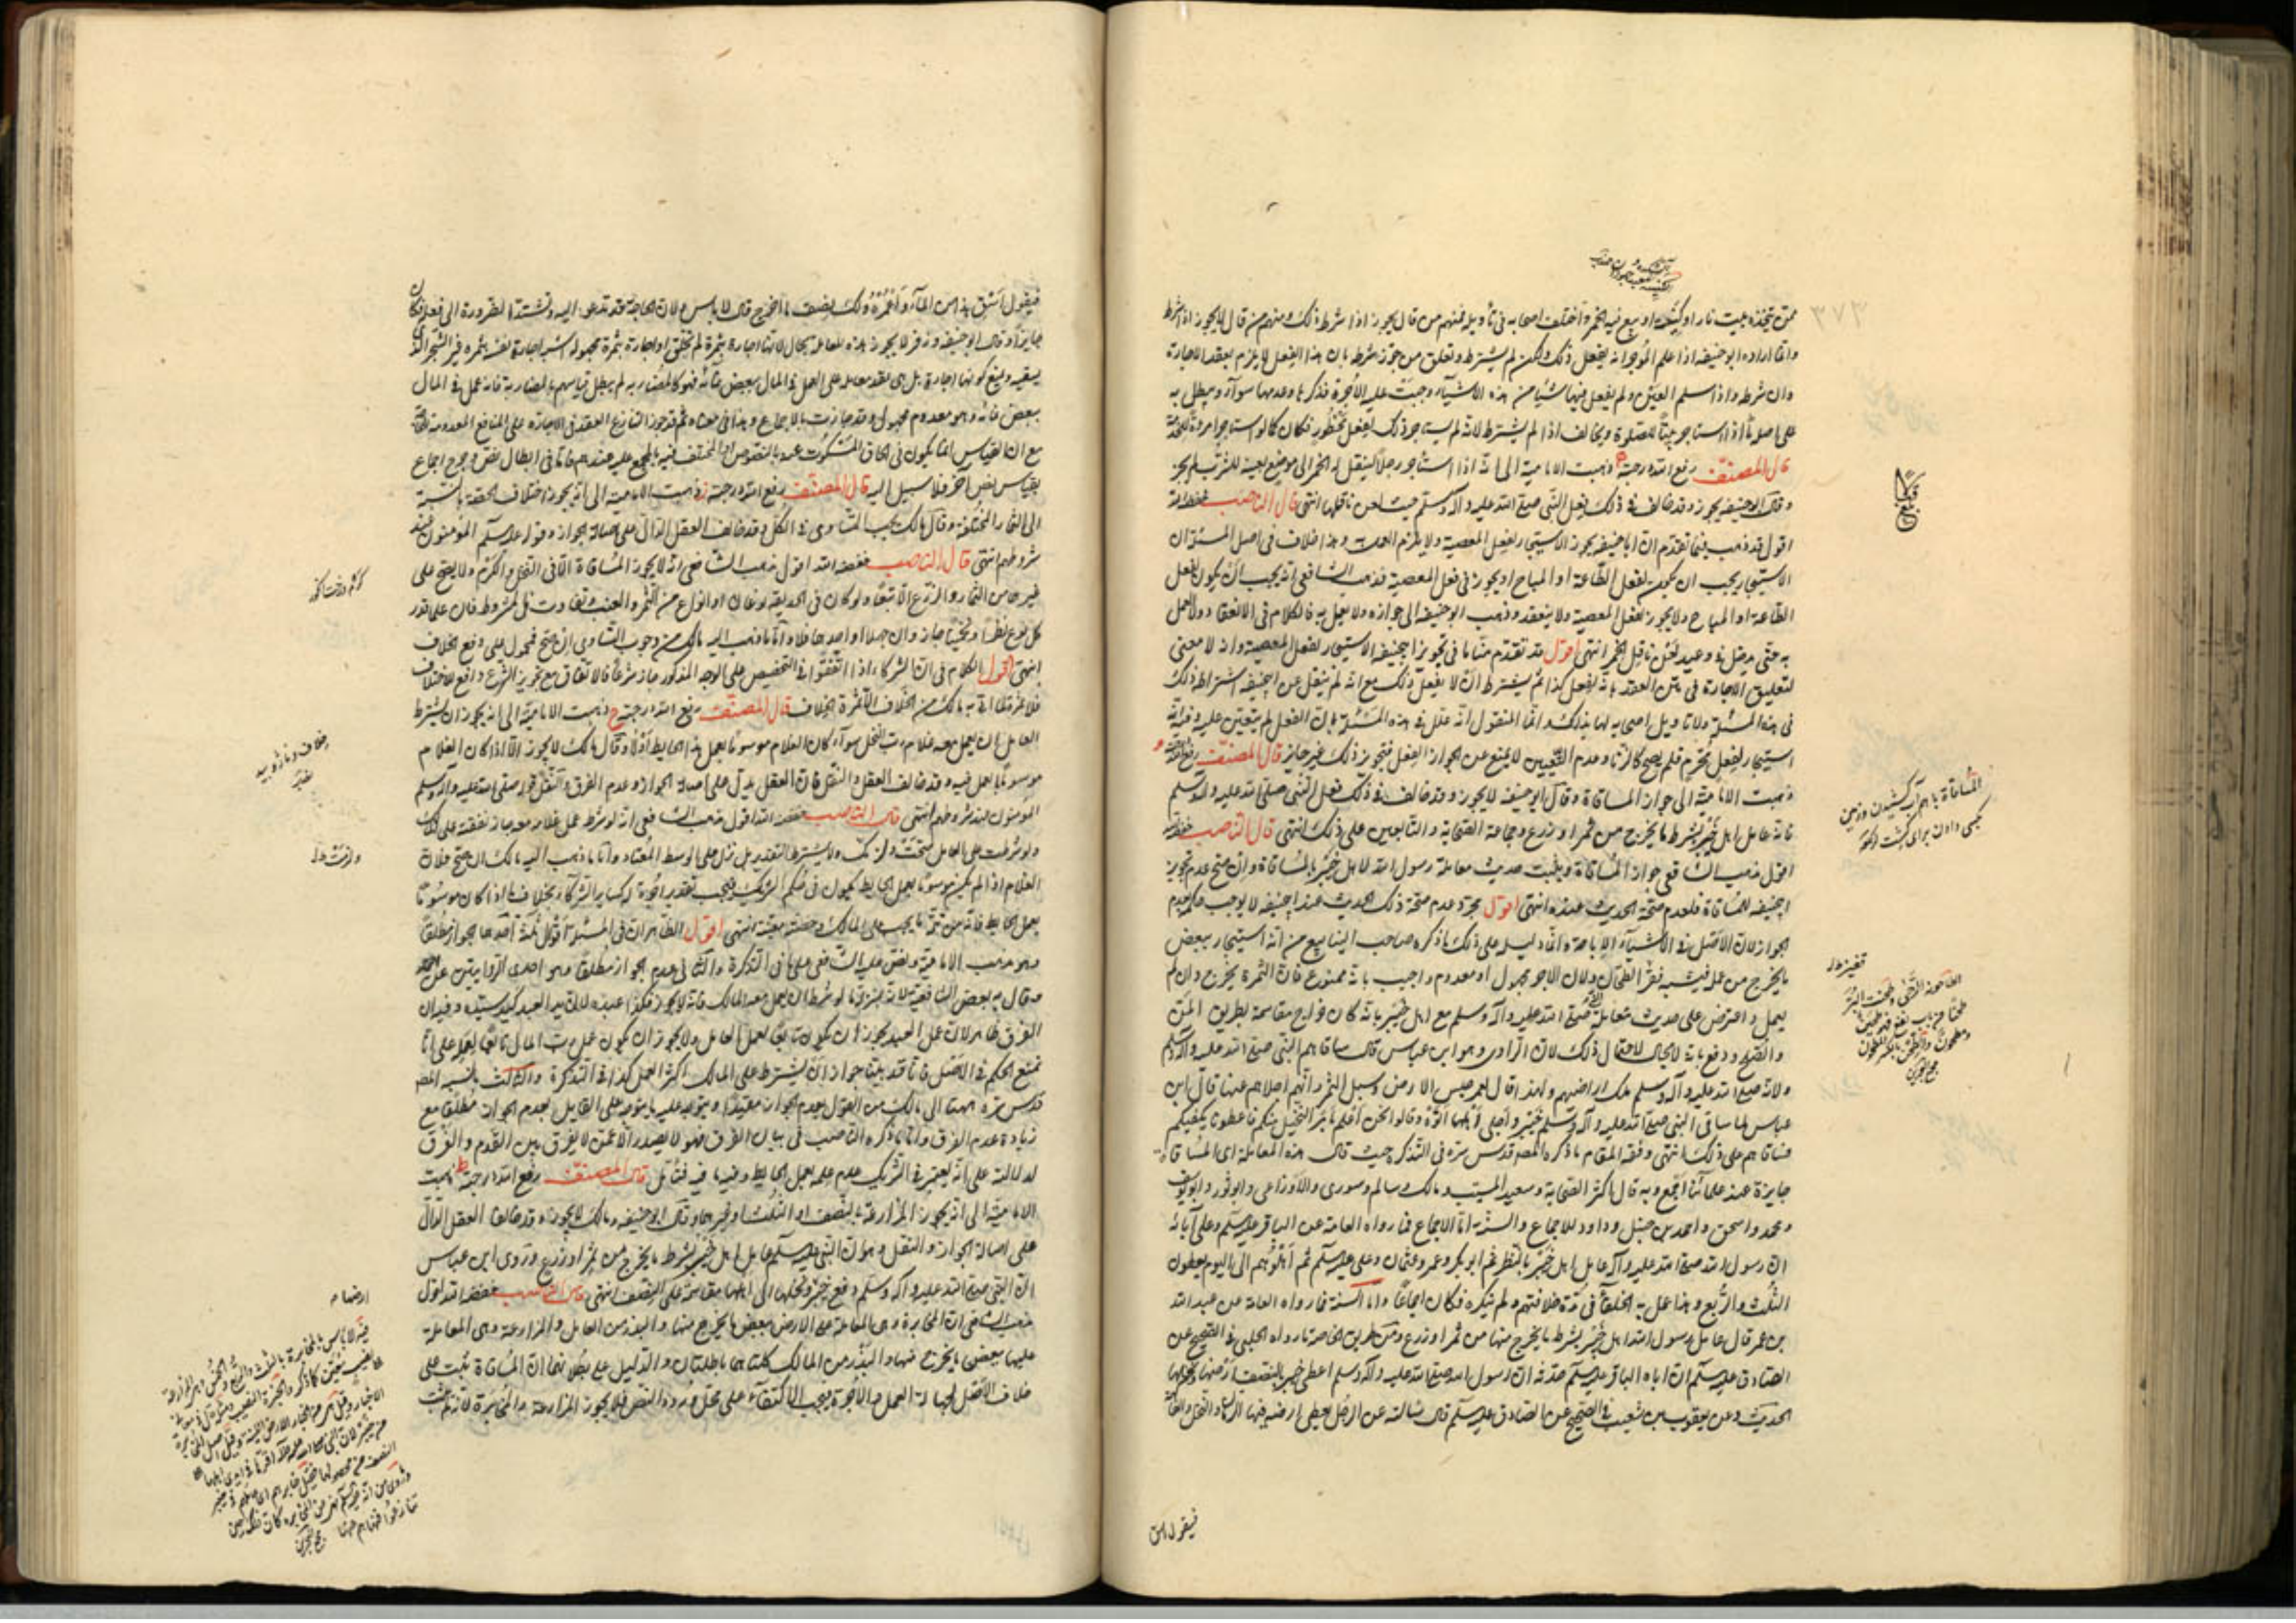 ممن يتخذه بيت نار او كنيسة او يبيع فيه الخمر واختلف اصحابه في تأويله فمنهم من قال يجوز اذا شرط ذلك ومنهم من قال لا يجوز اذا شرط
وانما اراد ابو حنيفة اذا علم المؤجر انه يفعل ذلك ولكن لم يشترط وتعلق من جوز شرطه بان هذا الفعل لا يلزم بعقد الاجارة
وان شرطه واذا سلم العين ولم يفعل فيها شيئا من هذه الاشياء وجبت عليه الاجرة فذكرها وعدمها سواء ويبطل به
على اصولنا اذا استاجر بيتا للصلوة ويخالف اذا لم يشترط لانه لم يستاجر ذلك لفعل محظور فكان كما لو استاجر امرأة للخدمة
قال المصنف رفع الله درجته ذهبت الامامية الى انه اذا استاجر رجلا لينقل له الخمر الى موضع بعينه للشرب لم يجز
وقال ابو حنيفة يجوز وقد خالف في ذلك فعل النبي صلى الله عليه وآله وسلم حيث لعن ناقلها انتهى قال الناصب خفضه الله
اقول قد ذهب فيما تقدم ان ابا حنيفة يجوز الاستيجار لفعل المعصية ولا يلزم العمل وهذا خلاف في اصل المسئلة ان
الاستيجار يجب ان يكون لفعل الطاعة او المباح او يجوز في فعل المعصية فذهب الشافعي انه يجب ان يكون لفعل
الطاعة او المباح ولا يجوز لفعل المعصية ولا ينعقد وذهب ابو حنيفة الى جوازه ولا يعمل به فالكلام في الانعقاد والعمل
به حتى يدخل في وعيد لعن ناقل الخمر انتهى اقول قد تقدم منا ما في تجويز ابي حنيفة الاستيجار لفعل المعصية وانه لا معنى
لتعليق الاجارة في متن العقد بانه يفعل كذا ثم يشترط ان لا يفعل ذلك مع انه لم ينقل عن ابي حنيفة اشتراط ذلك
في هذه المسئلة ولا تأويل اصحابه لها بذلك وانما المنقول انه علل في هذه المسئلة بان الفعل لم يتعين عليه وفيه انه
استيجار لفعل محرم فلم يصح كالزنا وعدم التعيين لا يمنع عن الجواز الفعل فتجويز ذلك غير جايز قال المصنف رفع الله درجته و
ذهبت الامامية الى جواز المساقاة وقال ابو حنيفة لا يجوز وقد خالف في ذلك فعل النبي صلى الله عليه وآله وسلم
فانه عامل اهل خيبر بشرط ما يخرج من ثمر او زرع وجماعة الصحابة والتابعين على ذلك انتهى قال الناصب خفضه الله
اقول مذهب الشافعي جواز المساقاة ويثبت حديث معاملة رسول الله لاهل خيبر بالمساقاة وان صح عدم تجويز
ابي حنيفة للمساقاة فلعدم صحة الحديث عنده انتهى اقول مجرد عدم صحة ذلك الحديث عند ابي حنيفة لا يوجب حكم عدم
الجواز لان الاصل في الاشياء الاباحة وانما دليله على ذلك ما ذكره صاحب الينابيع من انه استيجار ببعض
ما يخرج من عمله فيشبه قفيز الطحان ولان الاجر مجهول او معدوم واجيب بانه ممنوع فان الثمرة يخرج وان لم
يعمل واعترض على حديث معاملة النبي صلى الله عليه وآله وسلم مع اهل خيبر بانه كان خراج مقاسمة بطريق المن
والصلح ودفع بانه لا مجال لاحتمال ذلك لان الراوي وهو ابن عباس قال ساقاهم النبي صلى الله عليه وآله وسلم
ولانه صلى الله عليه وآله وسلم ملك اراضيهم ولهذا قال لعمر حبس الارض وسبل الثمر وانهم اجلاهم عنها قال ابن
عباس لما ساقى النبي صلى الله عليه وآله وسلم خيبر واجلى اهلها قالوا نحن اعلم بامر النخيل منكم فاعطونا نكفيكم
فساقاهم على ذلك انتهى وفقه المقام ما ذكره المصنف قدس سره في التذكرة حيث قال هذه المعاملة اي المساقاة
جايزة عند علمائنا اجمع وبه قال اكثر الصحابة وسعيد المسيب ومالك وسالم وثوري والاوزاعي وابو ثور وابو يوسف
ومحمد واسحق واحمد بن حنبل وداود للاجماع والسنة اما الاجماع فما رواه العامة عن الباقر عليه السلم وعلى آبائه
ان رسول الله صلى الله عليه وآله عامل اهل خيبر بالشطر ثم ابو بكر وعمر وعثمان وعلي عليه السلم ثم اهلوهم الى اليوم يعطون
الثلث والربع وهذا عمل به الخلفاء في مدة خلافتهم ولم ينكره فكان اجماعا واما السنة فما رواه العامة عن عبد الله
بن عمر قال عامل رسول الله اهل خيبر بشرط ما يخرج منها من ثمر او زرع ومن طريق الخاصة ما رواه الحلبي في الصحيح عن
الصادق عليه السلم ان اباه الباقر عليه السلم حدثه ان رسول الله صلى الله عليه وآله وسلم اعطى خيبر بالنصف ارضها ونخلها
الحديث وعن يعقوب بن شعيب في الصحيح عن الصادق عليه السلم قال سالته عن الرجل يعطي ارضه فيها الرمان والنخل والفاكهة
فيقول اسق
٣٧٣
المساقاة باهم آب كشيدن وزمين
بكسى دادن براى كشت
الطاحونة الرحى وطحنت البر
مجمع البحرين
فيقول اسق هذا من الماء واعمره ولك نصف ما اخرج قال لا باس ولان الحاجة قد تدعو اليه وتشتد الضرورة الى فعله فكان
جايزا وقال ابو حنيفة وزفر لا يجوز هذه المعاملة بحال لانها اجارة بثمرة لم تخلق او اجارة بثمرة مجهولة اشبه اجارة نفسه بثمره غير الشجر الذي
يسقيه ويمنع كونها اجارة بل هي عقد معاملة على العمل في المال ببعض نمائه فهو كالمضاربة ثم يبطل قياسهم بالمضاربة فانه عمل في المال
ببعض نمائه وهو معدوم مجهول وقد جازت بالاجماع وهذا في معناه ثم قد جوز الشارع العقد في الاجارة على المنافع المعدومة للحاجة
مع ان القياس انما يكون في الحاق المسكوت عنه بالمنصوص او المختلف فيه بالمجمع عليه عندهم فاما في ابطال نص وخرق اجماع
بقياس نص آخر فلا سبيل اليه قال المصنف رفع الله درجته ز ذهبت الامامية الى انه يجوز اختلاف الحصة بالنسبة
الى الثمار المختلفة وقال مالك يجب التساوي في الكل وقد خالف العقل الدال على اصالة الجواز وقوله عليه السلم المؤمنون عند
شروطهم انتهى قال الناصب خفضه الله اقول مذهب الشافعي انه لا يجوز المساقاة الا في النخل والكرم ولا يصح على
غيرها من الثمار والزرع الا تبعا ولو كان في الحديقة نوعان او انواع من الثمر والعنب تفاوت في المشروط فان علم قدر
كل نوع نظرا وتخمينا جاز وان جهلا او احدهما فلا واما ما ذهب اليه مالك من وجوب التساوي ان صح فمحمول على دفع الخلاف
انتهى اقول الكلام في ان الشركاء اذا اتفقوا في التخصيص على الوجه المذكور جاز شرعا فالاتفاق مع تجويز الشرع دافع للاختلاف
فلا ثمرة لما اتى به مالك من الخلاف الا ثمرة الخلاف قال المصنف رفع الله درجته ح ذهبت الامامية الى انه يجوز ان يشترط
العامل ان يعمل معه غلام رب النخل سواء كان الغلام موسوما بعمل هذا الحايط او لا وقال مالك لا يجوز الا اذا كان الغلام
موسوما بالعمل فيه وقد خالف العقل والنقل فان العقل يدل على اصالة الجواز وعدم الفرق والنقل قوله صلى الله عليه وآله وسلم
المؤمنون عند شروطهم انتهى قال الناصب خفضه الله اقول مذهب الشافعي انه لو شرط عمل غلامه معه جاز نفقته على المالك
ولو شرطت على العامل صحت ولا يشترط التقدير بل ينزل على الوسط المعتاد واما ما ذهب اليه مالك ان صح فلان
الغلام اذا لم يكن موسوما بعمل الحايط يكون في حكم الشريك فيجب تقدير اجرة له كساير الشركاء بخلاف ما اذا كان موسوما
بعمل الحايط فانه من تتمة ما يجب على المالك وحصته معينة انتهى اقول الظاهر ان في المسئلة اقوال ثلثة احدها الجواز مطلقا
وهو مذهب الامامية ونص عليه الشافعي على ما في التذكرة والثاني عدم الجواز مطلقا وهو احدى الروايتين عن احمد
وقال به بعض الشافعية لانه بمنزلة ما لو شرط ان يعمل معه المالك فانه لا يجوز فكذا عبده لان يد العبد كيد سيده وفيه ان
الفرق ظاهر لان عمل العبد يجوز ان يكون تابعا لعمل العامل ولا يجوز ان يكون عمل رب المال تابعا لعمله على انا
نمنع الحكم في الاصل فانا قد بينا جواز ان يشترط على المالك اكثر العمل كذا في التذكرة والثالث ما نسبه المصنف
قدس سره ههنا الى مالك من القول بعدم الجواز مقيدا ويتوجه عليه ما يتوجه على القايل بعدم الجواز مطلقا مع
زيادة عدم الفرق واما ما ذكره الناصب في بيان الفرق فهو لا يصدر الا عمن لا يفرق بين القدم والفرق
لدلالته على انه يعتبر في الشريك عدم علمه بعمل الحايط وفيه ما فيه فتامل قال المصنف رفع الله درجته ط ذهبت
الامامية الى انه يجوز المزارعة بالنصف او الثلث او غيرهما وقال ابو حنيفة ومالك لا يجوز وقد خالفا العقل الدال
على اصالة الجواز والنقل وهو ان النبي عليه السلم عامل اهل خيبر بشرط ما يخرج من ثمر او زرع وروى ابن عباس
ان النبي صلى الله عليه وآله وسلم دفع خيبر ونخلها الى اهلها مقاسمة على النصف انتهى قال الناصب خفضه الله اقول
مذهب الشافعي ان المخابرة وهي المعاملة على الارض ببعض ما يخرج منها والبذر من العامل والمزارعة وهي المعاملة
عليها ببعض ما يخرج منها والبذر من المالك كلتاهما باطلتان والدليل على بطلانهما ان المساقاة ثبت على
خلاف الاصل لجهالة العمل والاجرة فيجب الاكتفاء على محل ورود النص فلا يجوز المزارعة والمخابرة لانه لم يثبت
كرم درخت انگور
مجمع البحرين